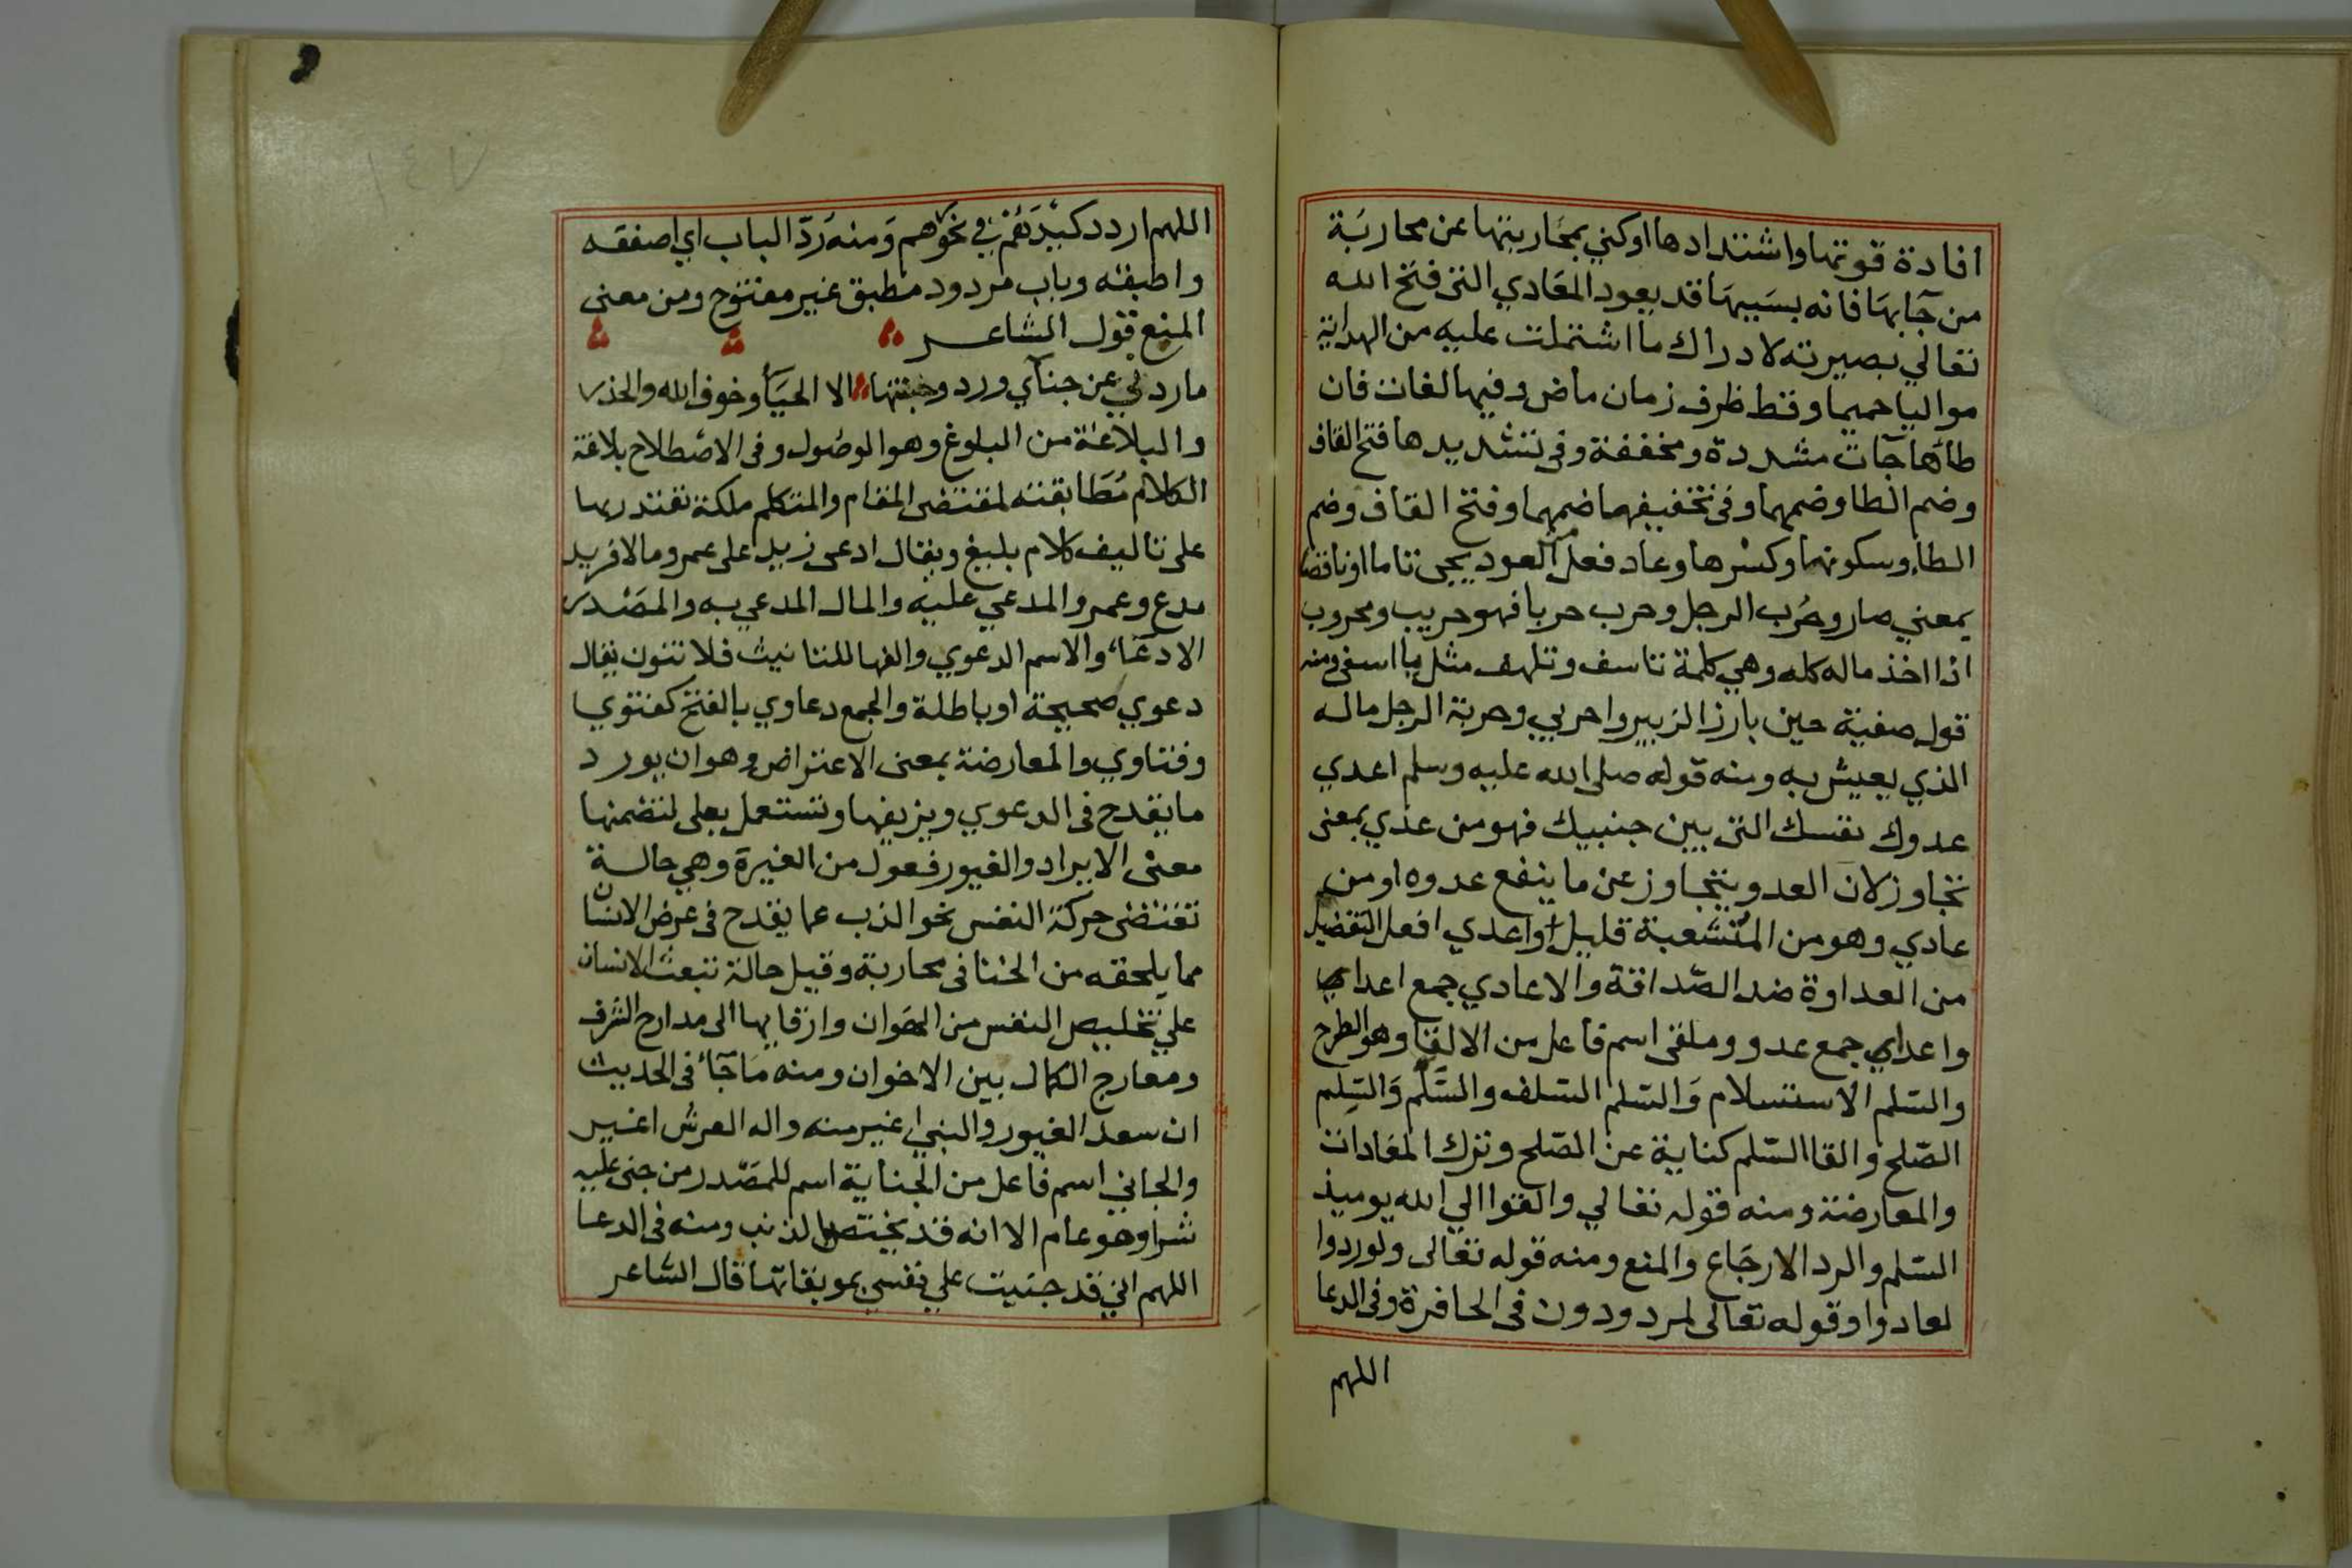 افادة قوتها واشتدادها اوكني بمحاربتها عن محاربة
من جآ بها فانه بسببها قد يعود المعادي التي فتح الله
تعالي بصيرته لادراك ما اشتملت عليه من الهداية
مواليا حميما وقط ظرف زمان ماض وفيها لغات فان
طآءها جآت مشددة ومخففة وفى تشديدها فتح القاف
وضم الطا وضمهما وفى تخفيفهما ضمهما وفتح القاف وضم
الطاء وسكونها وكسرها وعاد فعل من العود يجى تاما او ناقصا
بمعني صار وحُرب الرجل وحرب حربا فهو حريب ومحروب
اذا اخذ ماله كله وهي كلمة تاسف وتلهف مثل يا اسفى ومنه
قول صفية حين بارز الزبير واحربي وحربة الرجل ماله
الذي يعيش به ومنه قوله صلى الله عليه وسلم اعدي
عدوك نفسك التى بين جنبيك فهو من عدي بمعنى
تجاوز لان العدو يتجاوز عن ما ينفع عدوه او من
عادي وهو من المتشعبة قليل واعدي افعل التفضيل
من العداوة ضد الصداقة والاعادي جمع اعداي
واعداي جمع عدو وملقى اسم فاعل من الالقا وهو الطرح
والسلم الاستسلام وَالسّلم السلف والسَّلْم وَالسِلم
الصّلح والقا السّلم كناية عن الصّلح وترك المعادات
والمعارضة ومنه قوله تعالي والقوا الي الله يوميذ
السّلم والرد الارجَاع والمنع ومنه قوله تعالى ولو ردوا
لعادوا وقوله تعالى لمردودون فى الحافرة وفى الدعا
اللهم
١٤٧
اللهم اردد كيدَهُم في نحوهم وَمنه رَدّ الباب اي اصفقه
واطبقه وباب مردود مطبق غير مفتوح ومن معنى
المنع قول الشاعر
ما ردني عن جنآي ورد وجنتها الا الحيَآ وخوف الله والحذر
والبلاغة من البلوغ وهو الوصُول وفى الاصْطلاح بلاغة
الكلام مُطَابقته لمقتضى المقام والمتكلم ملكة تقتدر بها
على تاليف كلام بليغ ويقال ادعى زيد على عمرو مالا فزيد
مدع وعمرو المدعي عليه والمال المدعي به والمصْدر
الادعَآء والاسم الدعوي والفها للتانيث فلا تنون يقال
دعوي صحيحة او باطلة والجمع دعاوي بالفتح كفتوي
وفتاوي والمعارضة بمعنى الاعتراض وهو ان يورد
ما يقدح فى الدعوي ويزيفها وتستعمل بعلى لتضمنها
معنى الايراد والغيور فعول من الغيرة وهي حالة
تقتضى حركة النفس نحو الذب عما يقدح فى عرض الانسان
مما يلحقه من الخنا فى محاربة وقيل حالة تبعث الانسان
علي تخليص النفس من الهَوان وارقايها الى مدارج الشرف
ومعارج الكمال بين الاخوان ومنه مَا جآء فى الحديث
ان سعد الغيور والنبي اغير منه واله العرش اغير
والجاني اسم فاعل من الجناية اسم للمصْدر من جنى عليه
شرا وهو عام الا انه قد يختص بالذنب ومنه فى الدعا
اللهم اني قد جنيت علي نفسي بموبقاتها قال الشاعر